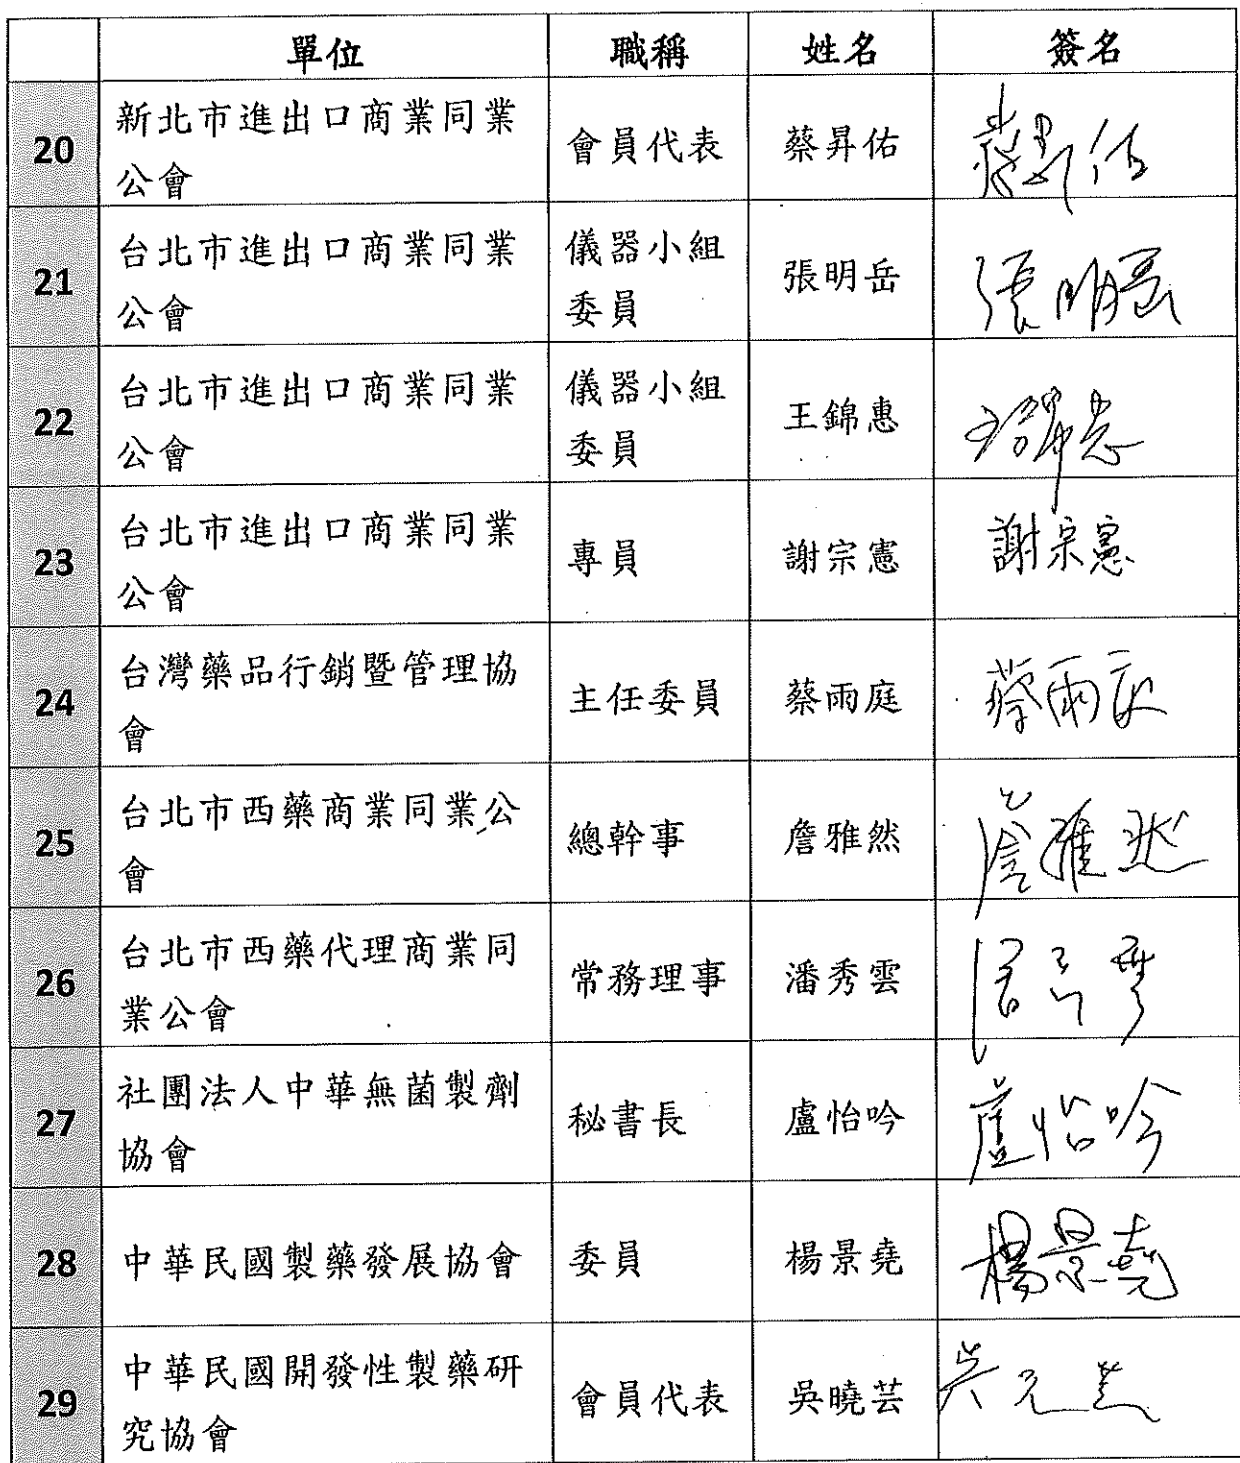 單位 職稱 姓名 簽名
20 新北市進出口商業同業 公會 會員代表 蔡昇佑 蔡昇佑
21 台北市進出口商業同業 公會 儀器小組 委員 張明岳 張明岳
22 台北市進出口商業同業 公會 儀器小組 委員 王錦惠 王錦惠
23 台北市進出口商業同業 公會 專員 謝宗憲 謝宗憲
24 台灣藥品行銷暨管理協 會 主任委員 蔡雨庭 蔡雨庭
25 台北市西藥商業同業公 會 總幹事 詹雅然 詹雅然
26 台北市西藥代理商業同 業公會 常務理事 潘秀雲
27 社團法人中華無菌製劑 協會 秘書長 盧怡吟 盧怡吟
28 中華民國製藥發展協會 委員 楊景堯 楊景堯
29 中華民國開發性製藥研 究協會 會員代表 吳曉芸